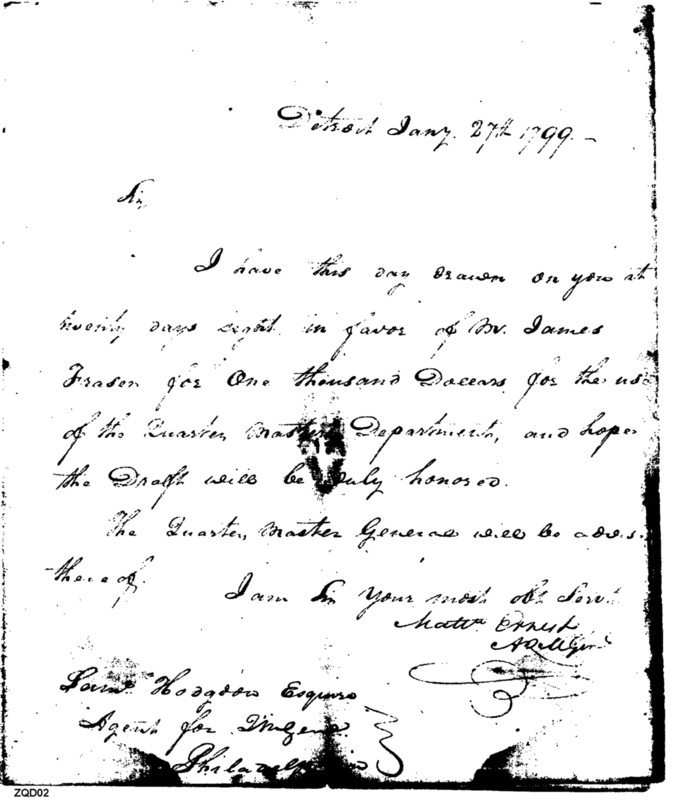 Detroit Jany. 27th 1799.—
Sir,
I have this day drawn on you at
twenty days sight in favor of Mr. James
Fraser for One thousand Dollars for the use
of the Quarter Master Department, and hope
the Draft will be duly honored.
The Quarter Master General will be advis
thereof.
I am Sir Your most obt Servt
Matt. Ernest
AQMGen
Saml. Hodgdon Esquire
Agent for QMGenl
Philadelphia
ZQD02